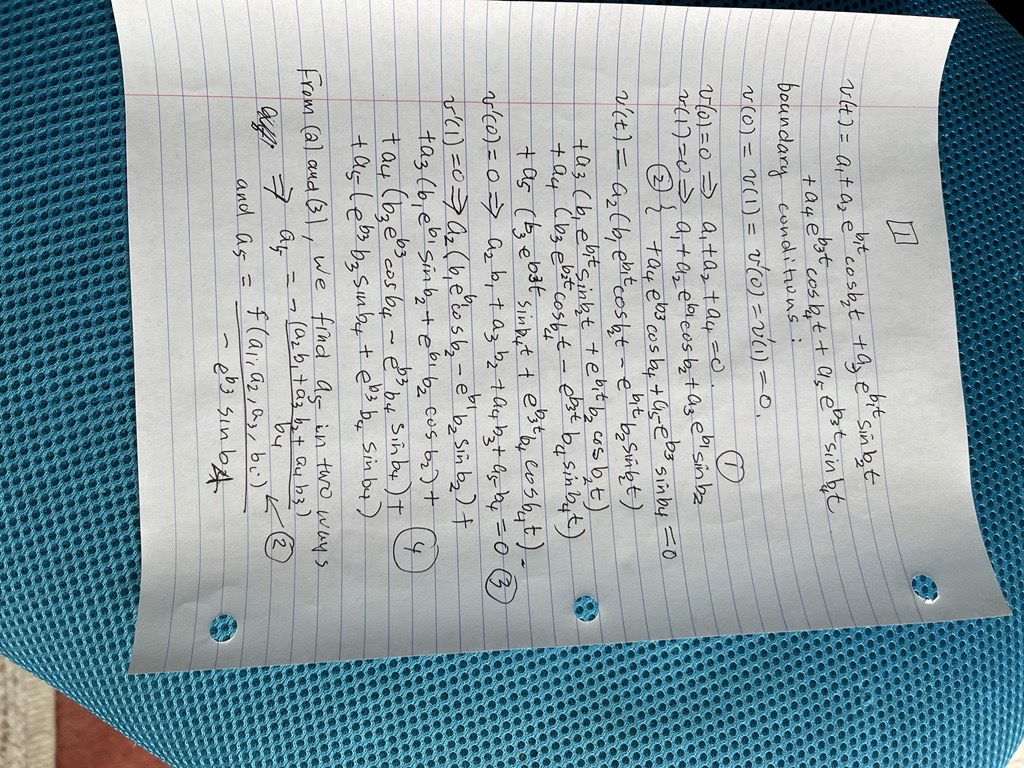 1
v(t) = a₁ + a₂ e^{b₁t} cos b₂t + a₃ e^{b₁t} sin b₂t
+ a₄ e^{b₃t} cos b₄t + a₅ e^{b₃t} sin b₄t
boundary conditions :
v(0) = v(1) = v'(0) = v'(1) = 0.
v(0)=0 ⇒ a₁ + a₂ + a₄ = 0. ①
v(1)=0 ⇒ a₁ + a₂ e^{b₁} cos b₂ + a₃ e^{b₁} sin b₂
② { + a₄ e^{b₃} cos b₄ + a₅ e^{b₃} sin b₄ = 0
v'(t) = a₂ (b₁ e^{b₁t} cos b₂t − e^{b₁t} b₂ sin b₂t)
+ a₃ (b₁ e^{b₁t} sin b₂t + e^{b₁t} b₂ cos b₂t)
+ a₄ (b₃ e^{b₃t} cos b₄t − e^{b₃t} b₄ sin b₄t)
+ a₅ (b₃ e^{b₃t} sin b₄t + e^{b₃t} b₄ cos b₄t).
v'(0) = 0 ⇒ a₂ b₁ + a₃ b₂ + a₄ b₃ + a₅ b₄ = 0 ③
v'(1) = 0 ⇒ a₂ (b₁ e^{b₁} cos b₂ − e^{b₁} b₂ sin b₂) +
+ a₃ (b₁ e^{b₁} sin b₂ + e^{b₁} b₂ cos b₂) +
+ a₄ (b₃ e^{b₃} cos b₄ − e^{b₃} b₄ sin b₄) + ④
+ a₅ (e^{b₃} b₃ sin b₄ + e^{b₃} b₄ sin b₄)
From (2) and (3), we find a₅ in two ways
⇒ a₅ = −(a₂ b₁ + a₃ b₂ + a₄ b₃) / b₄
and a₅ = f(a₁, a₂, a₃, bᵢ) / − e^{b₃} sin b₄ ← ②